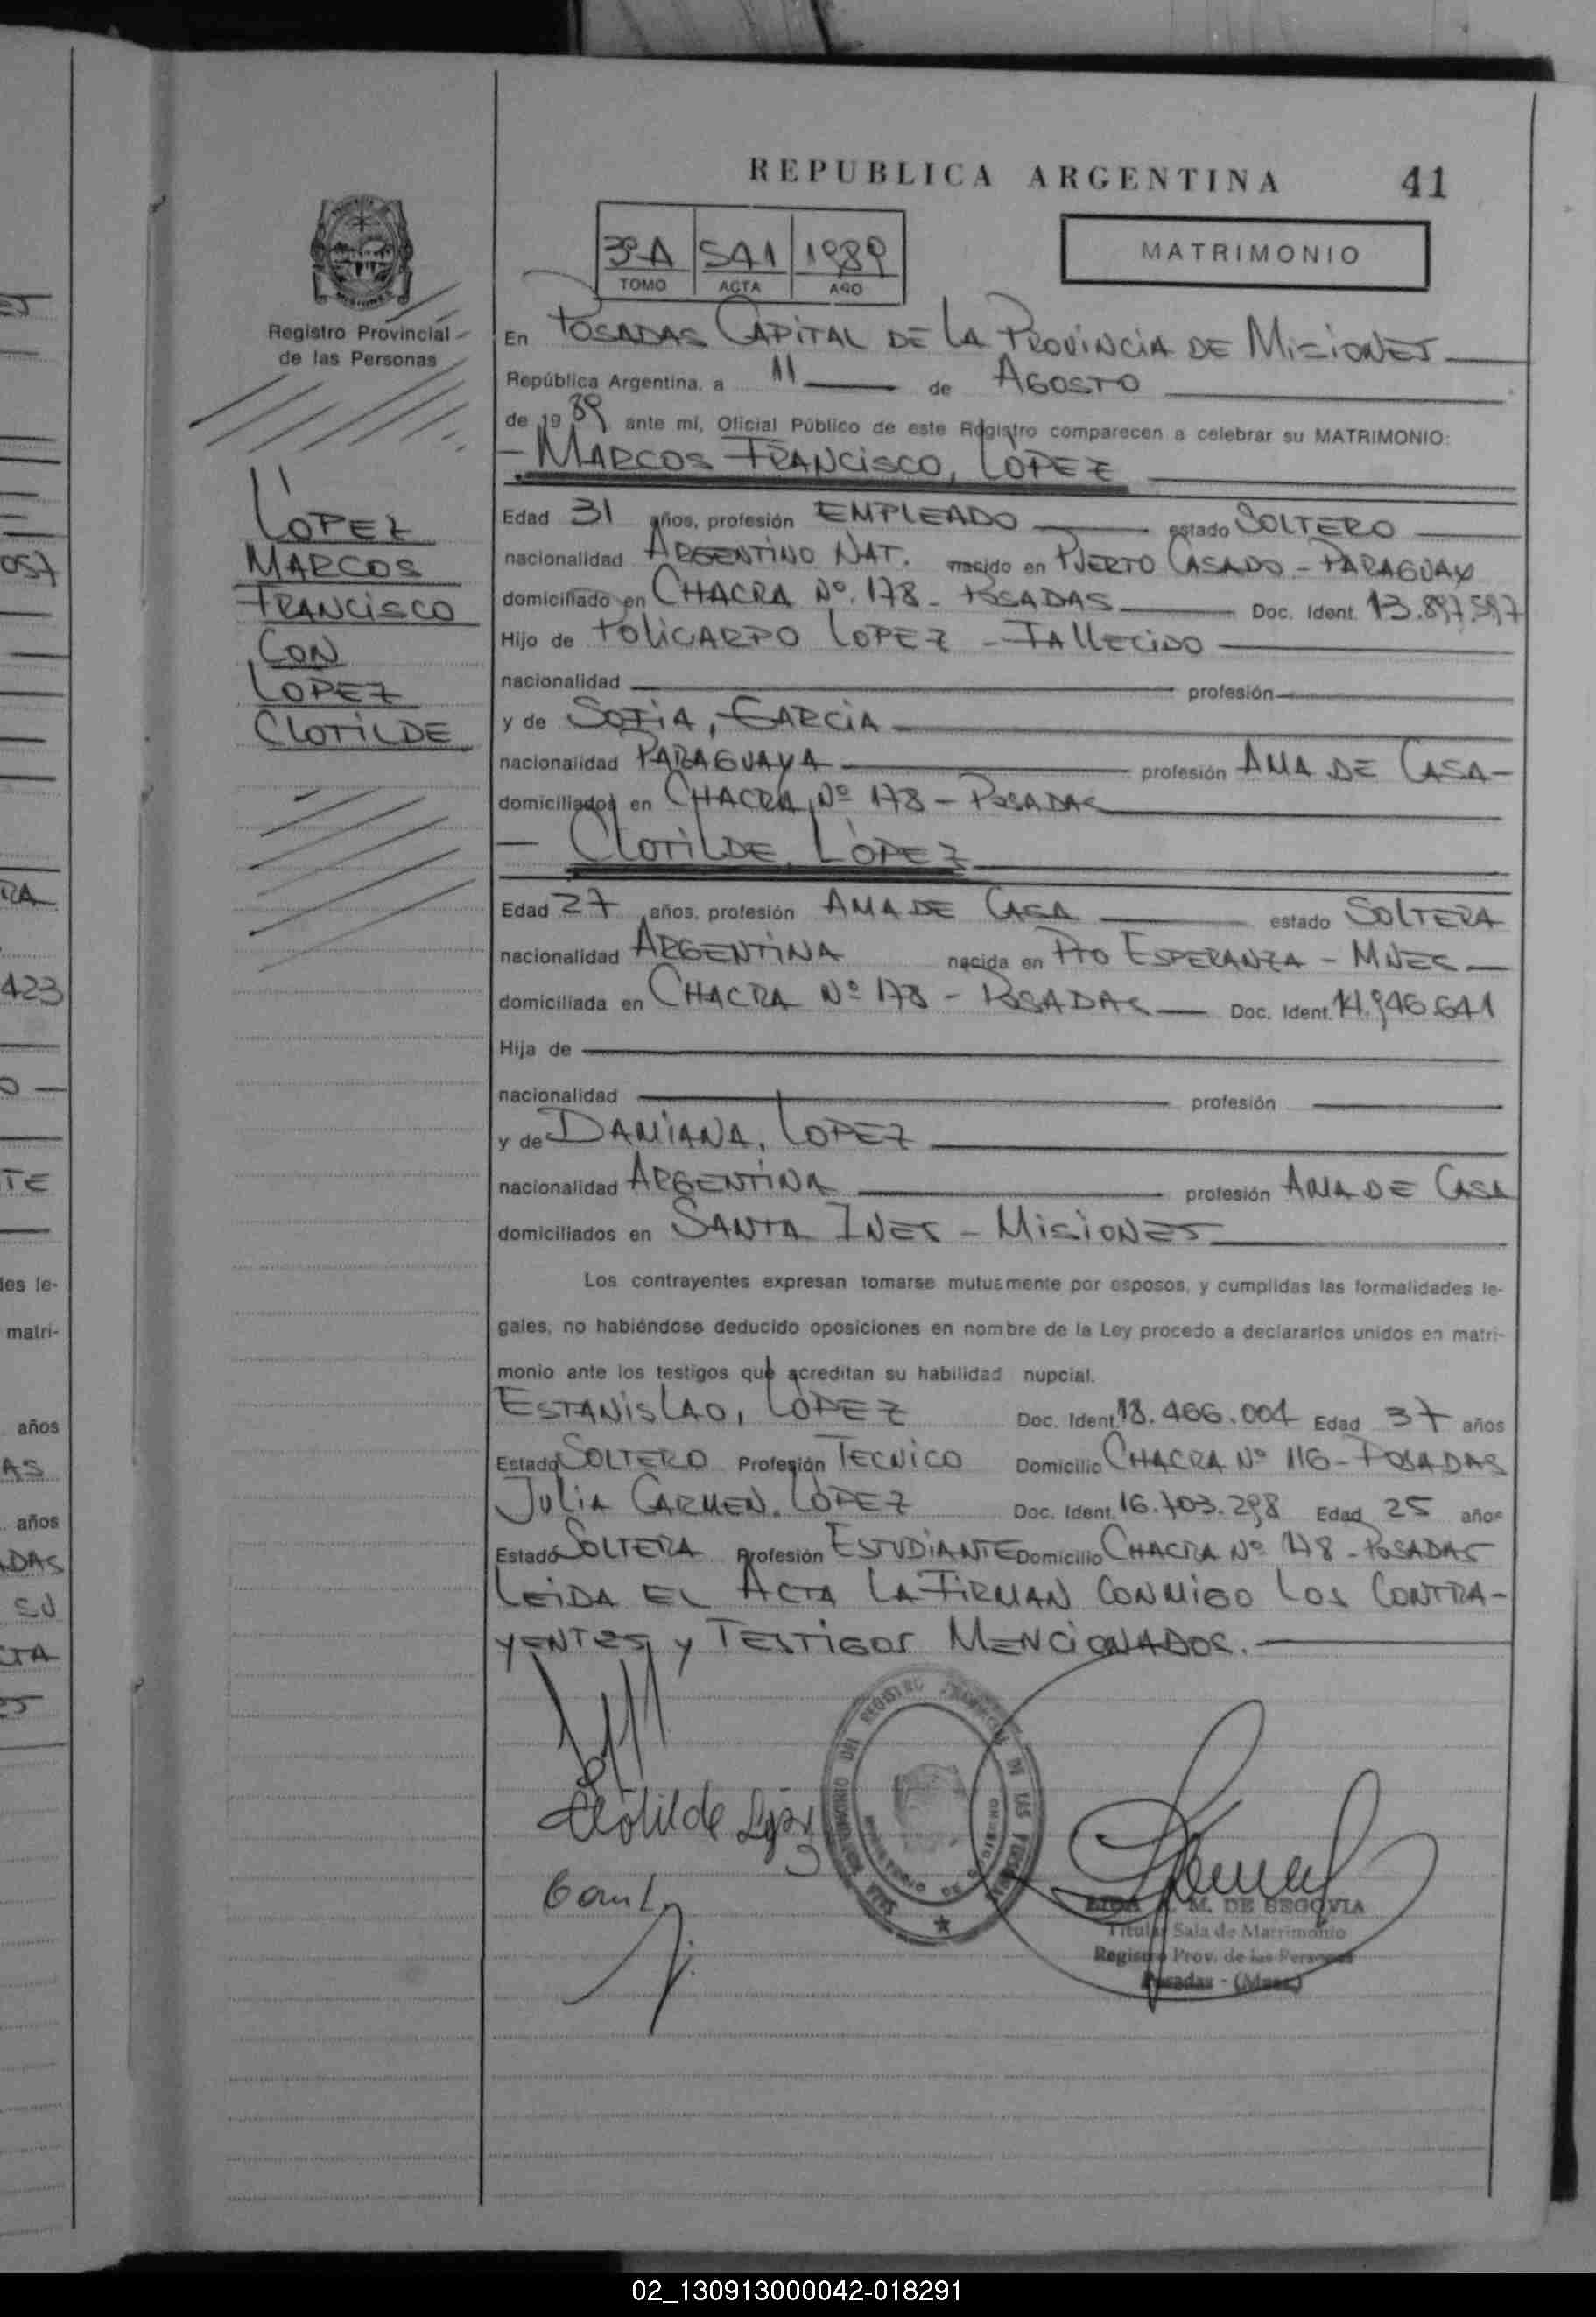 REPUBLICA ARGENTINA 41
3º A 541 1989
TOMO ACTA AÑO
MATRIMONIO
Registro Provincial
de las Personas
LOPEZ
MARCOS
FRANCISCO
CON
LOPEZ
CLOTILDE
En POSADAS CAPITAL DE LA PROVINCIA DE MISIONES
República Argentina, a 11 de AGOSTO
de 1989 ante mí, Oficial Público de este Registro comparecen a celebrar su MATRIMONIO:
- MARCOS FRANCISCO, LOPEZ
Edad 31 años, profesión EMPLEADO estado SOLTERO
nacionalidad ARGENTINO NAT. nacido en PUERTO CASADO - PARAGUAY
domiciliado en CHACRA Nº 178 - POSADAS Doc. Ident. 13.897.597
Hijo de POLICARPO LOPEZ - FALLECIDO
nacionalidad profesión
y de SOFIA, GARCIA
nacionalidad PARAGUAYA profesión AMA DE CASA -
domiciliados en CHACRA Nº 178 - POSADAS
- CLOTILDE, LOPEZ
Edad 27 años, profesión AMA DE CASA estado SOLTERA
nacionalidad ARGENTINA nacida en PTO ESPERANZA - MNES -
domiciliada en CHACRA Nº 178 - POSADAS Doc. Ident. 14.946.641
Hija de
nacionalidad profesión
y de DAMIANA, LOPEZ
nacionalidad ARGENTINA profesión AMA DE CASA
domiciliados en SANTA INES - MISIONES
Los contrayentes expresan tomarse mutuamente por esposos, y cumplidas las formalidades le-
gales, no habiéndose deducido oposiciones en nombre de la Ley procedo a declararlos unidos en matri-
monio ante los testigos que acreditan su habilidad nupcial.
ESTANISLAO, LOPEZ Doc. Ident. 18.466.004 Edad 37 años
Estado SOLTERO Profesión TECNICO Domicilio CHACRA Nº 116 - POSADAS
JULIA CARMEN, LOPEZ Doc. Ident. 16.703.298 Edad 25 años
Estado SOLTERA Profesión ESTUDIANTE Domicilio CHACRA Nº 178 - POSADAS
LEIDA EL ACTA LA FIRMAN CONMIGO LOS CONTRA-
YENTES Y TESTIGOS MENCIONADOS.
Clotilde López
M. DE SEGOVIA
Titular Sala de Matrimonio
Registro Prov. de las Personas
Posadas - (Mnes.)
02_130913000042-018291